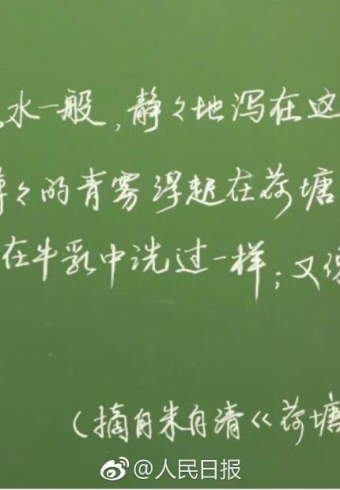 水一般,静々地泻在这
薄々的青雾浮起在荷塘
在牛乳中洗过一样;又
(摘自朱自清《荷塘
@人民日报